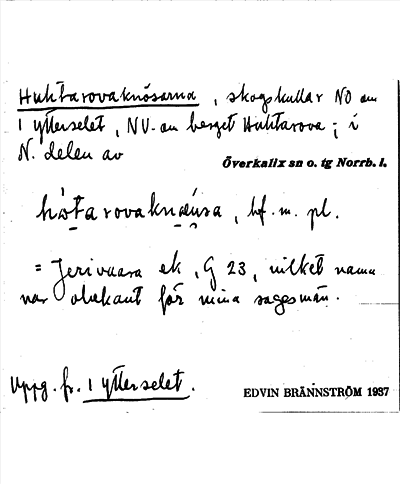 Huhtarovaknösarna, skogskullar NO om
1 ytterselet, NV. om berget Huhtarova; i
N. delen av
Överkalix sn o. tg Norrb. l.
hòtarovaknœusa, bf. m. pl.
= Jerivaara ek, G 23, vilket namn
var obekant för mina sagesmän.
Uppg. fr. 1 ytterselet.
EDVIN BRÄNNSTRÖM 1937